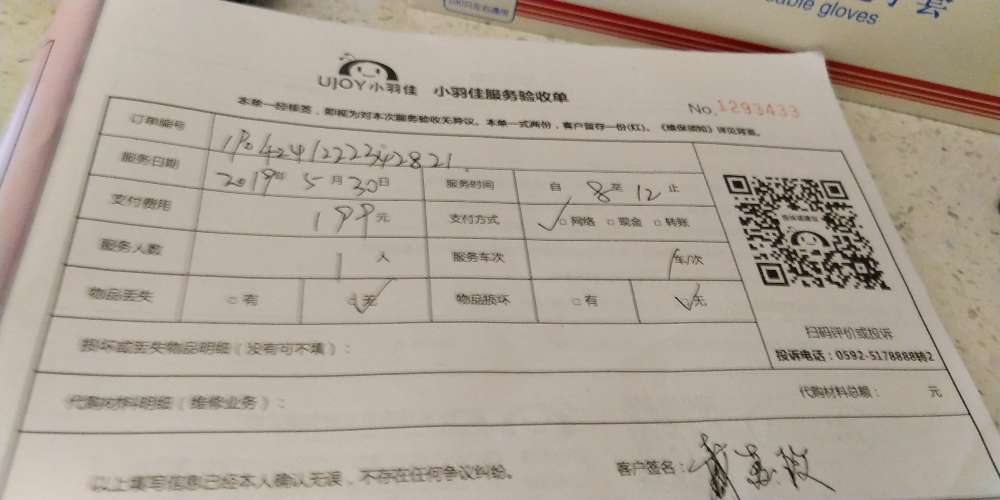 able gloves
UJOY小羽佳 小羽佳服务验收单
No.1293433
本单一经接签,即视为对本次服务验收无异议。本单一式两份,客户留存一份(红)。《维保须知》详见背面。
订单编号
服务日期 2019年 5月30日 服务时间 自 8 至 12 止
支付费用 199元 支付方式 ✓网络 □现金 □转账
服务人数 1 人 服务车次 / 车/次
物品丢失 □有 ✓无 物品损坏 □有 ✓无
扫码评价或投诉
投诉电话:0592-5178888转2
损坏或丢失物品明细(没有可不填):
代购材料明细(维修业务): 代购材料总额: 元
以上填写信息已经本人确认无误,不存在任何争议纠纷。 客户签名: